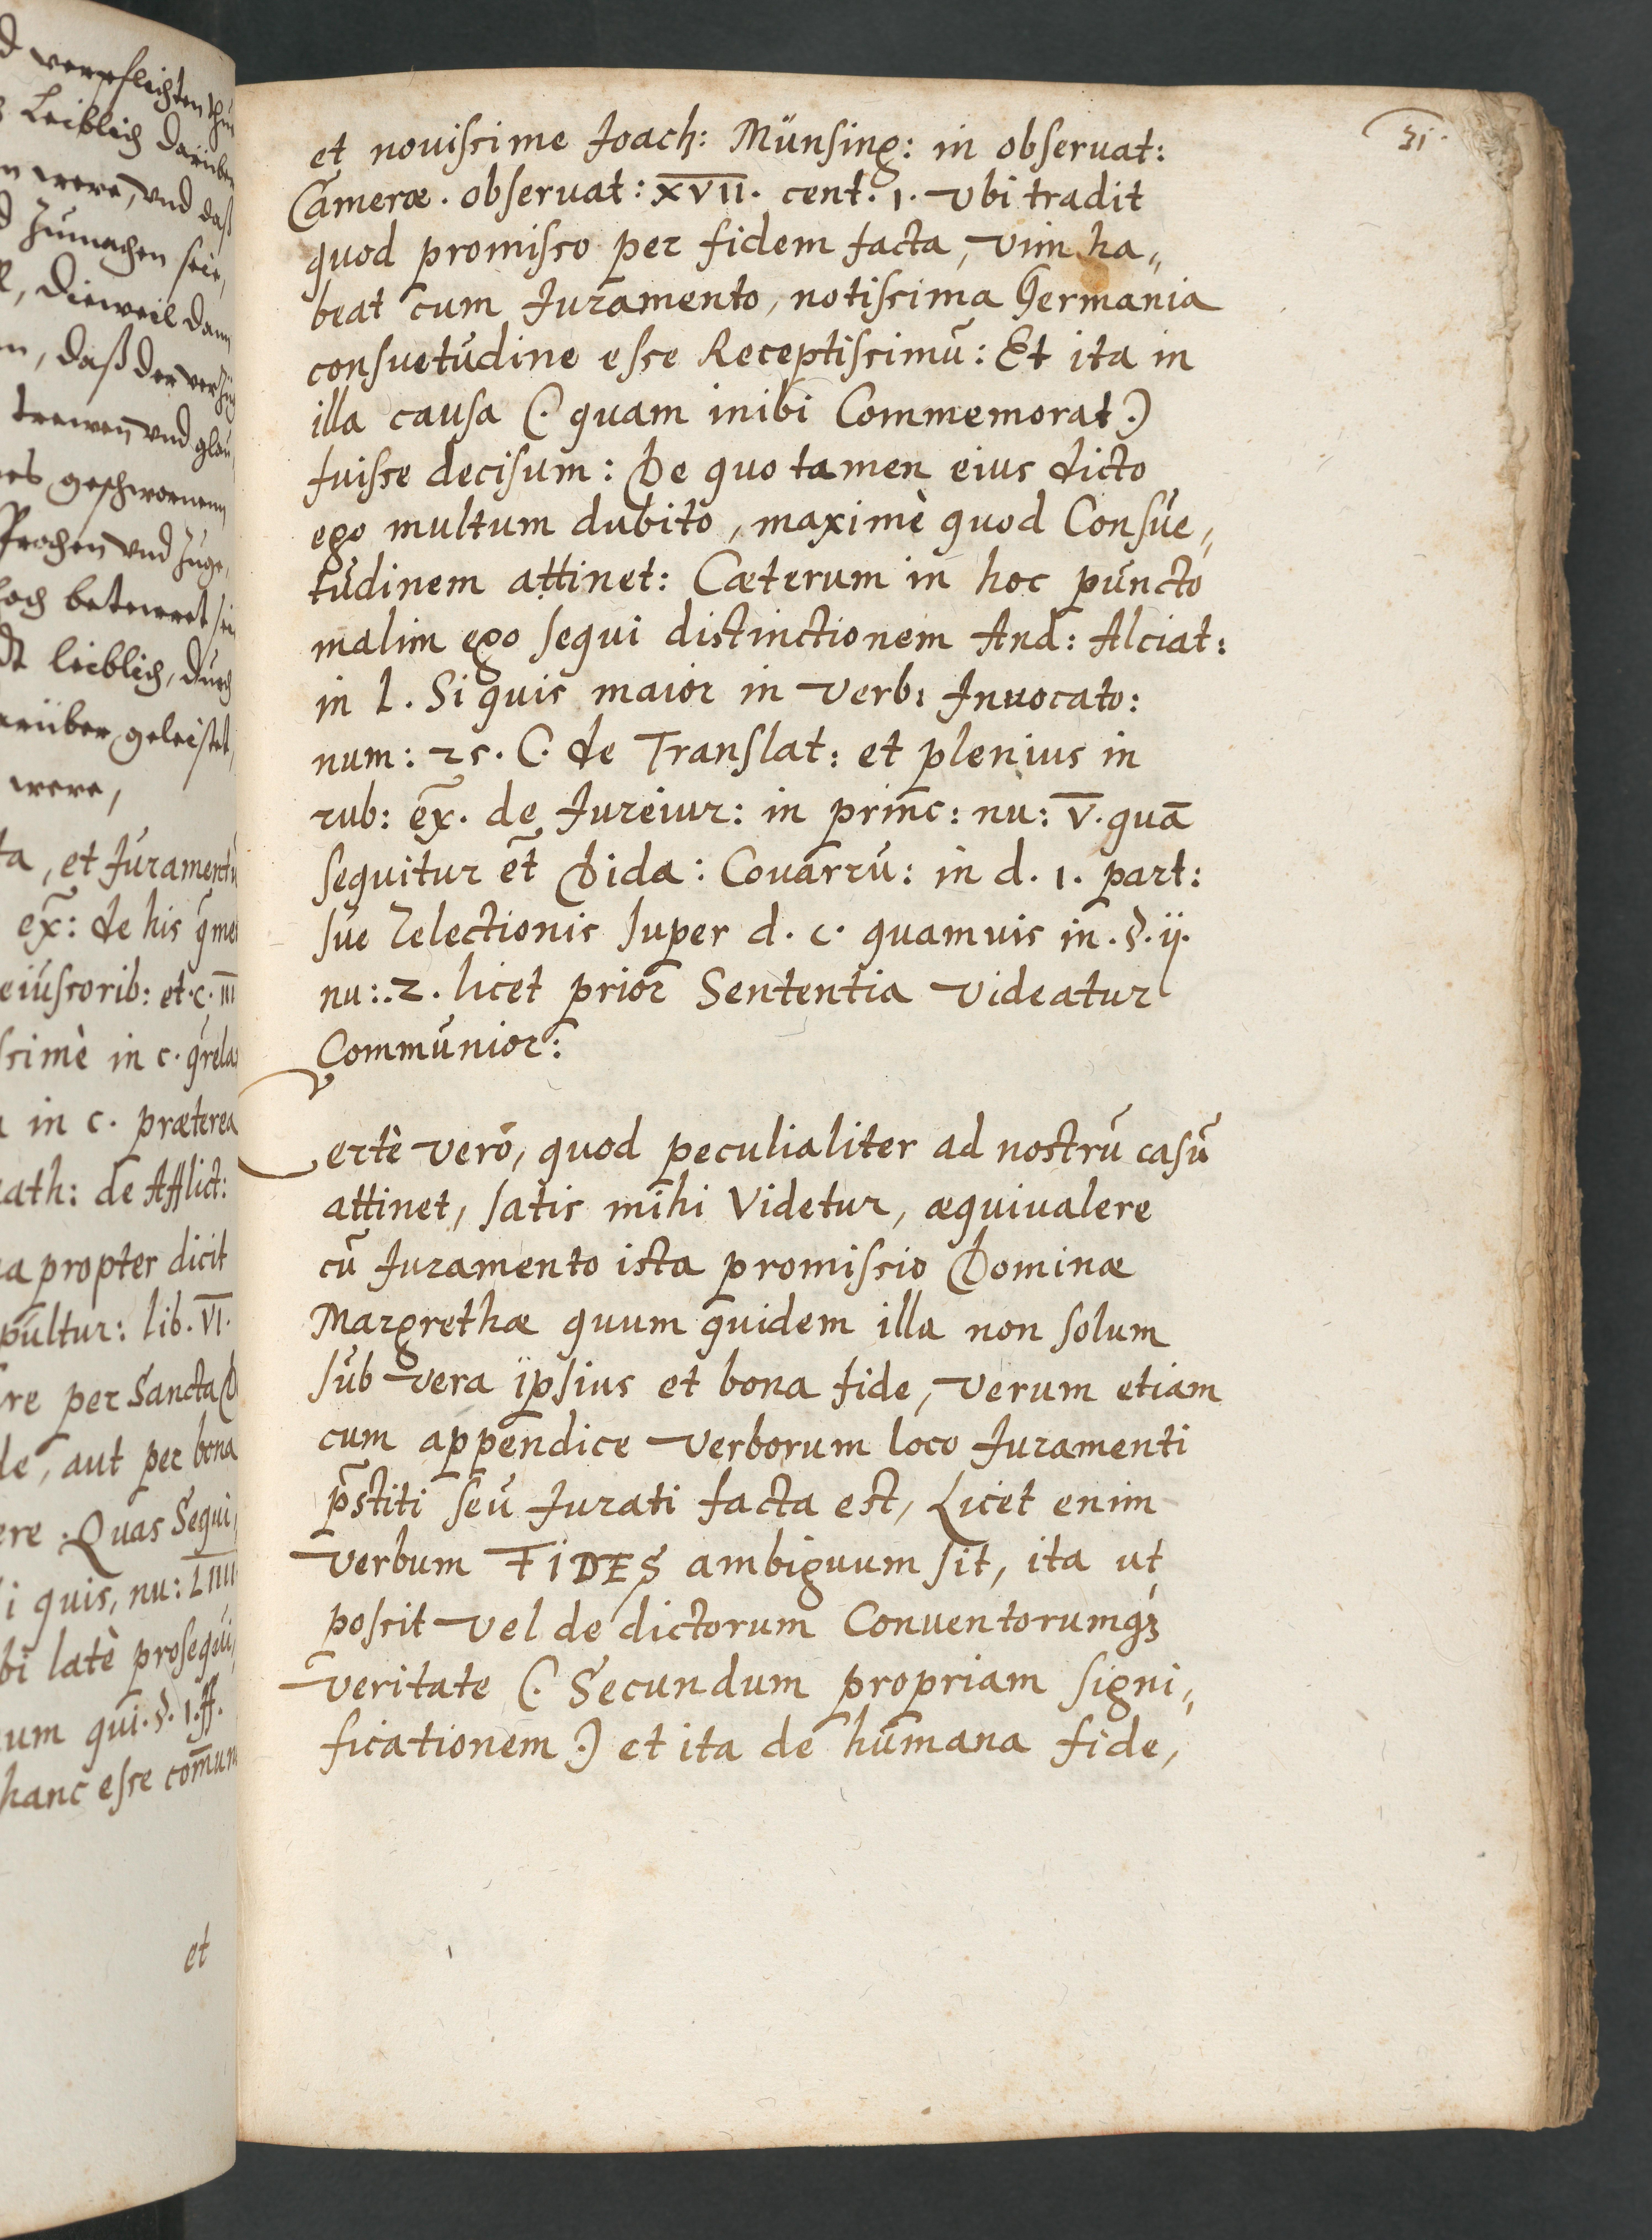 d verpflichten thue
Leiblich darüber
n were, vnd daß
d zumachen seie,
, dieweil dann
n, daß der
trewen vnd glau
es geschwornenn
sprochen vnd zuge,
betewret sei
dt leiblich, durch
arüber geleistet,
were,
ta, et Juramentū
ex̄: de his
eiuscorib: et. c. III
scimè in c.
in c. præterea
ath: de Afflict:
a propter dicit
pultur: lib. VI.
re per Sancta D
de, aut per bona
ere. Quas Sequi,
i quis, nu: LIIII
bi latè prosequi,
um qui. §. 1. ff.
hanc esse com̄un
et
31.
et nouissime Joach: Münsing: in obseruat:
Cameræ. obseruat: XVII. cent. 1. vbi tradit
quod promisso per fidem facta, vim ha„
beat cum Juramento, notissima Germania
consuetudine esse Receptissimū: Et ita in
illa causa (. quam inibi Commemorat .)
fuisse decisum: De quo tamen eius dicto
ego multum dubito, maximè quod Consue„
tudinem attinet: Cæterum in hoc puncto
malim ego sequi distinctionem And: Alciat:
in l. Si quis maior in verb: Inuocato:
num: 25. C. de Translat: et plenius in
rub: ex̄. de Jureiur: in princ: nu: V. quā
sequitur et̄ Dida: Couarru: in d. 1. part:
sue Relectionis super d. c. quamuis in. §. ij.
nu:. 2. licet prior Sententia videatur
Communior:
Certè verò, quod peculialiter ad nostrū casū
attinet, satis mihi Videtur, æquiualere
cū Juramento ista promissio Dominæ
Margrethæ quum quidem illa non solum
sub vera ipsius et bona fide, verum etiam
cum appendice verborum loco Juramenti
p̄stiti seu Jurati facta est, Licet enim
verbum FIDES ambiguum sit, ita ut
possit vel de dictorum Conuentorumqꝫ
veritate (. Secundum propriam signi„
ficationem .) et ita de humana fide,